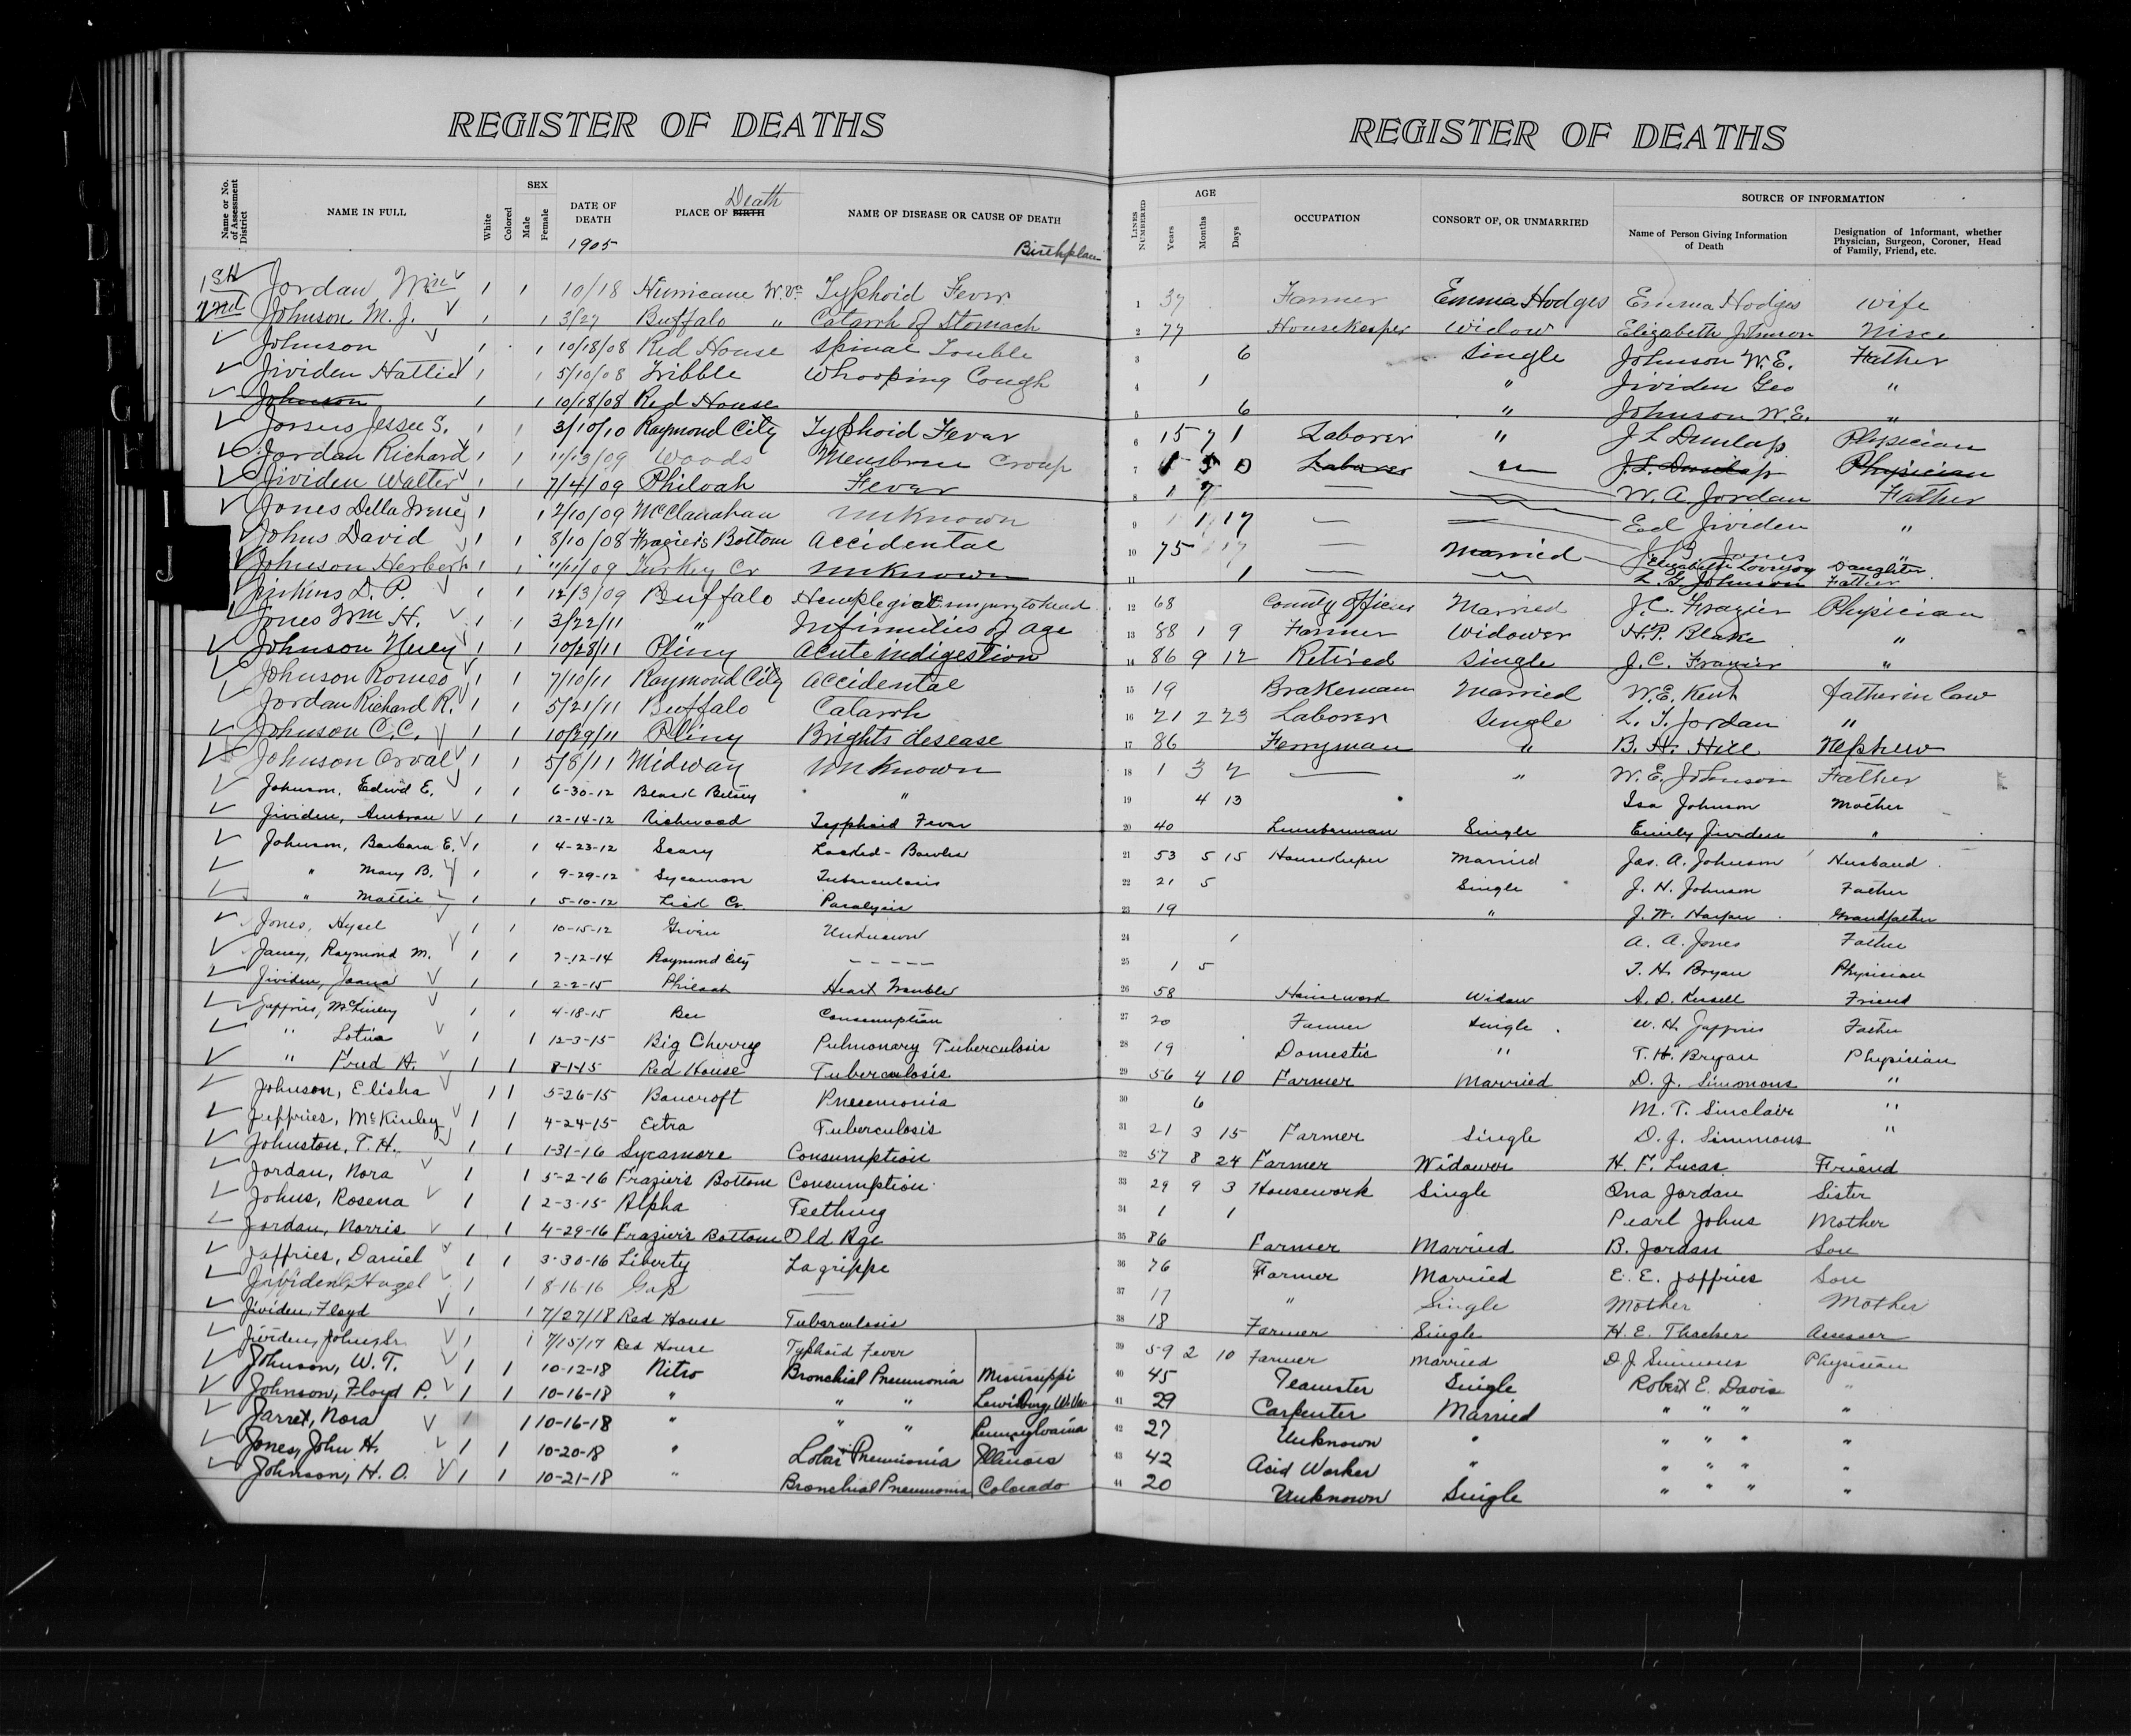 REGISTER OF DEATHS
Name or No. of Assessment District
NAME IN FULL
White
Colored
SEX
Male
Female
DATE OF DEATH
1905
PLACE OF BIRTH Death
NAME OF DISEASE OR CAUSE OF DEATH
Birthplace
1st Jordan Wm 1 1 10/18 Hurricane W. Va Typhoid Fever
2nd Johnson M. J. 1 1 3/27 Buffalo " Catarrh of Stomach
Johnson 1 1 10/18/08 Red House Spinal Touble
Jividen Hattie 1 1 5/10/08 Tribble Whooping Cough
Johnson 1 1 10/18/08 Red House
Jessee S. 1 1 3/10/10 Raymond City Typhoid Fever
Jordan Richard 1 1 11/13/09 Woods Croup
Jividen Walter 1 1 7/4/09 Philoah Fever
Jones Della Irene 1 1 2/10/09 McClanahan Unknown
Johns David 1 1 8/10/08 Fraziers Bottom Accidental
Johnson Herbert 1 1 11/11/09 Turkey Cr Unknown
Jenkins D. P. 1 1 12/3/09 Buffalo injury to head
Jones Wm H. 1 1 3/22/11 " Infirmities of age
Johnson 1 1 10/28/11 Pliny Acute indigestion
Johnson Romeo 1 1 7/10/11 Raymond City Accidental
Jordan Richard R. 1 1 5/21/11 Buffalo Catarrh
Johnson C. C. 1 1 10/29/11 Pliny Brights desease
Johnson Orval 1 1 5/8/11 Midway Unknown
Johnson, Edwd E. 1 1 6-30-12 "
Jividen, 1 1 12-14-12 Richwood Typhoid Fever
Johnson, Barbara E. 1 1 4-23-12 Scary Locked-Bowles
" Mary B. 1 1 9-29-12 Sycamore Tuberculosis
" Mattie 1 1 5-10-12 Cr. Paralysis
Jones, Hysel 1 1 10-15-12 Given Unknown
Raymond M. 1 1 2-12-14 Raymond City - - - - -
Jividen, 1 1 2-2-15 Philoah Heart Trouble
Jeffries, McKinley 1 1 4-18-15 Consumption
" Lotia 1 1 12-3-15 Big Cherry Pulmonary Tuberculosis
" Fred H. 1 1 8-1-15 Red House Tuberculosis
Johnson, Elisha 1 1 5-26-15 Bancroft Pneumonia
Jeffries, McKinley 1 1 4-24-15 Extra Tuberculosis
Johnston, T. H. 1 1 1-31-16 Sycamore Consumption
Jordan, Nora 1 1 5-2-16 Frazier's Bottom Consumption
Johns, Rosena 1 1 2-3-15 Alpha Teething
Jordan, Norris 1 1 4-29-16 Frazier's Bottom Old Age
Jaffries, Daniel 1 1 3-30-16 Liberty La grippe
Jividen, Hazel 1 1 8-16-16 Gap
Jividen, Floyd 1 1 7/27/18 Red House Tuberculosis
Jividen, John, Sr. 1 1 7/15/17 Red House Typhoid Fever
Johnson, W. T. 1 1 10-12-18 Nitro Bronchial Pneumonia Mississippi
Johnson, Floyd P. 1 1 10-16-18 " " " Lewisburg, W. Va.
Jarret, Nora 1 1 10-16-18 " " " Pennsylvania
Jones, John H. 1 1 10-20-18 " Lobar Pneumonia Illinois
Johnson, H. O. 1 1 10-21-18 " Bronchial Pneumonia Colorado
I
J
REGISTER OF DEATHS
LINES NUMBERED
AGE
Years
Months
Days
OCCUPATION
CONSORT OF, OR UNMARRIED
SOURCE OF INFORMATION
Name of Person Giving Information of Death
Designation of Informant, whether Physician, Surgeon, Coroner, Head of Family, Friend, etc.
1 37 Farmer Emma Hodges Emma Hodges Wife
2 77 Housekeeper Widow Elizabeth Johnson Niece
3 6 Single Johnson W. E. Father
4 1 " Jividen Geo "
5 6 " Johnson W. E. "
6 15 7 1 Laborer " J. L. Dunlap Physician
7 Laborer " J. L. Dunlap Physician
8 1 7 W. A. Jordan Father
9 1 17 Ed Jividen "
10 75 Married J. B. Jones "
Elizabeth Daughter
11 1 L. G. Johnson Father
12 68 County Officer Married J. C. Frazier Physician
13 88 1 9 Farmer Widower H. P. Blake "
14 86 9 12 Retired Single J. C. Frazier "
15 19 Brakeman Married W. E. Kent Father in law
16 21 2 23 Laborer Single L. T. Jordan "
17 86 Ferryman " B. H. Hill Nephew
18 1 3 2 " W. E. Johnson Father
19 4 13 Isa Johnson Mother
20 40 Lumberman Single Emily Jividen "
21 53 5 15 Housekeeper Married Jas. A. Johnson Husband
22 21 5 Single J. H. Johnson Father
23 19 " J. W. Harper Grandfather
24 1 A. A. Jones Father
25 1 5 T. H. Bryan Physician
26 58 Housework Widow A. D. Kessell Friend
27 20 Farmer Single W. H. Jeffries Father
28 19 Domestic " T. H. Bryan Physician
29 56 4 10 Farmer Married D. J. Simmons "
30 6 M. T. Sinclair "
31 21 3 15 Farmer Single D. J. Simmons "
32 57 8 24 Farmer Widower H. F. Lucas Friend
33 29 9 3 Housework Single Ona Jordan Sister
34 1 1 Pearl Johns Mother
35 86 Farmer Married B. Jordan Son
36 76 Farmer Married E. E. Jaffries Son
37 17 " Single Mother Mother
38 18 Farmer Single H. E. Thacker Assessor
39 59 2 10 Farmer Married D. J. Simmons Physician
40 45 Teamster Single Robert E. Davis "
41 29 Carpenter Married " " " "
42 27 Unknown " " " " "
43 42 Acid Worker " " " " "
44 20 Unknown Single " " " "